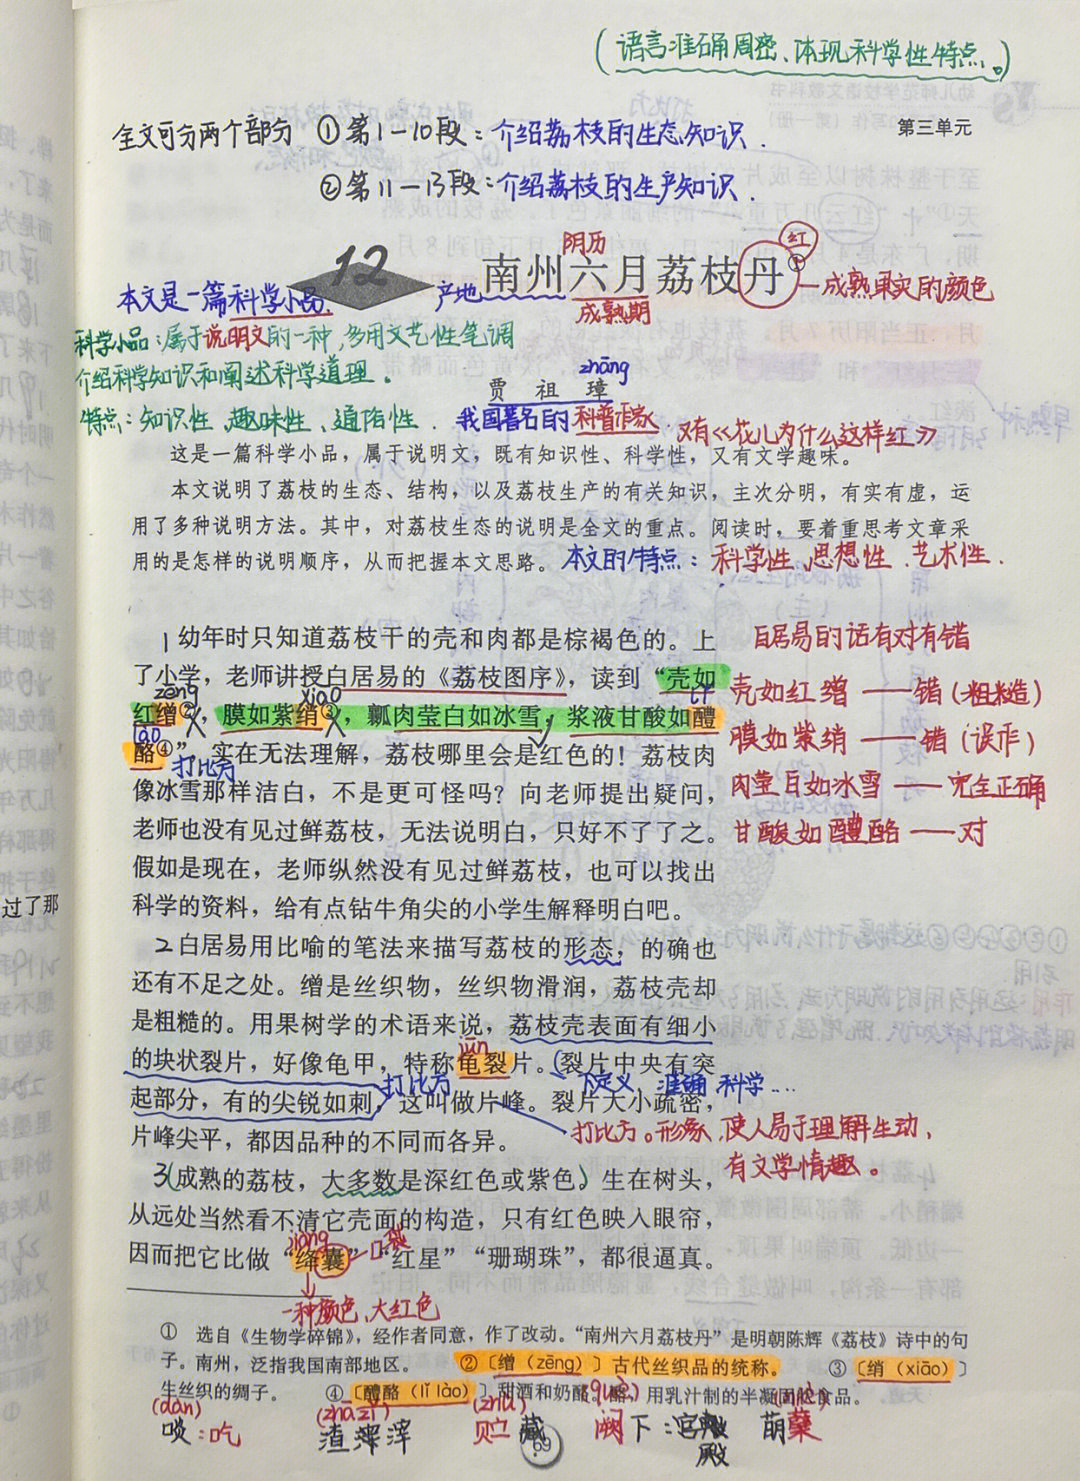 （语言准确周密、体现科学性特点。）
全文可分两个部分 ①第1—10段：介绍荔枝的生态知识.
第三单元
②第11—13段：介绍荔枝的生产知识.
阴历
红
12 南州六月荔枝丹①
本文是一篇科学小品.
产地
成熟期
成熟果实的颜色
科学小品：属于说明文的一种，多用文艺性笔调
介绍科学知识和阐述科学道理。
zhāng
贾 祖 璋
特点：知识性、趣味性、通俗性.
我国著名的科普作家. 又有《花儿为什么这样红》
这是一篇科学小品，属于说明文，既有知识性、科学性，又有文学趣味。
本文说明了荔枝的生态、结构，以及荔枝生产的有关知识，主次分明，有实有虚，运
用了多种说明方法。其中，对荔枝生态的说明是全文的重点。阅读时，要着重思考文章采
用的是怎样的说明顺序，从而把握本文思路。
本文的特点：科学性、思想性、艺术性.
1 幼年时只知道荔枝干的壳和肉都是棕褐色的。上
白居易的话有对有错
了小学，老师讲授白居易的《荔枝图序》，读到“壳如
zēng xiāo lǐ
壳如红缯——错（粗糙）
红缯②，膜如紫绡③，瓤肉莹白如冰雪，浆液甘酸如醴
lào
膜如紫绡——错（误作）
酪④”，实在无法理解，荔枝哪里会是红色的！荔枝肉
打比方
像冰雪那样洁白，不是更可怪吗？向老师提出疑问，
肉莹白如冰雪——完全正确
老师也没有见过鲜荔枝，无法说明白，只好不了了之。
甘酸如醴酪——对
假如是现在，老师纵然没有见过鲜荔枝，也可以找出
科学的资料，给有点钻牛角尖的小学生解释明白吧。
过了那
2 白居易用比喻的笔法来描写荔枝的形态，的确也
还有不足之处。缯是丝织物，丝织物滑润，荔枝壳却
是粗糙的。用果树学的术语来说，荔枝壳表面有细小
jūn
的块状裂片，好像龟甲，特称龟裂片。（裂片中央有突
打比方
下定义 准确 科学…
起部分，有的尖锐如刺，这叫做片峰。裂片大小疏密，
打比方。形象，使人易于理解生动，
片峰尖平，都因品种的不同而各异。
有文学情趣。
3（成熟的荔枝，大多数是深红色或紫色）生在树头，
从远处当然看不清它壳面的构造，只有红色映入眼帘，
jiàng
因而把它比做“绛囊”“红星”“珊瑚珠”，都很逼真。
一种颜色、大红色
① 选自《生物学碎锦》，经作者同意，作了改动。“南州六月荔枝丹”是明朝陈辉《荔枝》诗中的句
子。南州，泛指我国南部地区。 ②〔缯（zēng）〕古代丝织品的统称。 ③〔绡（xiāo）〕
生丝织的绸子。 ④〔醴酪（lǐ lào）〕甜酒和奶酪。酪，用乳汁制的半凝固的食品。
(dàn) (zhā zǐ) (zhù) (què)
啖：吃 渣滓滓 贮藏 阙下：宫殿 萌蘖
殿
69